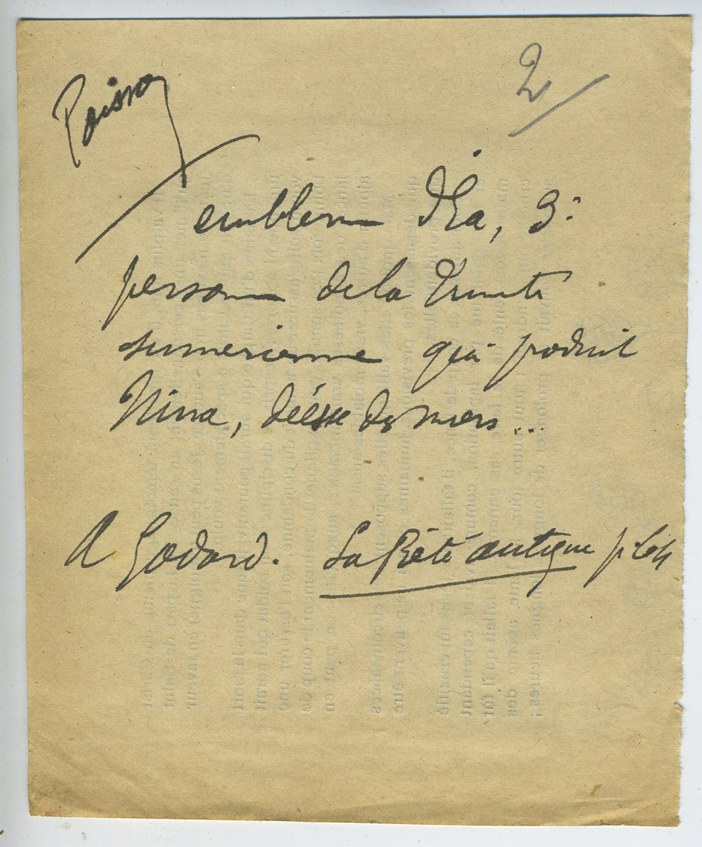 Poisson
2
emblème d'Ea, 3e
personne de la Trinité
sumérienne qui produit
Nina, déesse des mers...
A Godard. La Piété antique